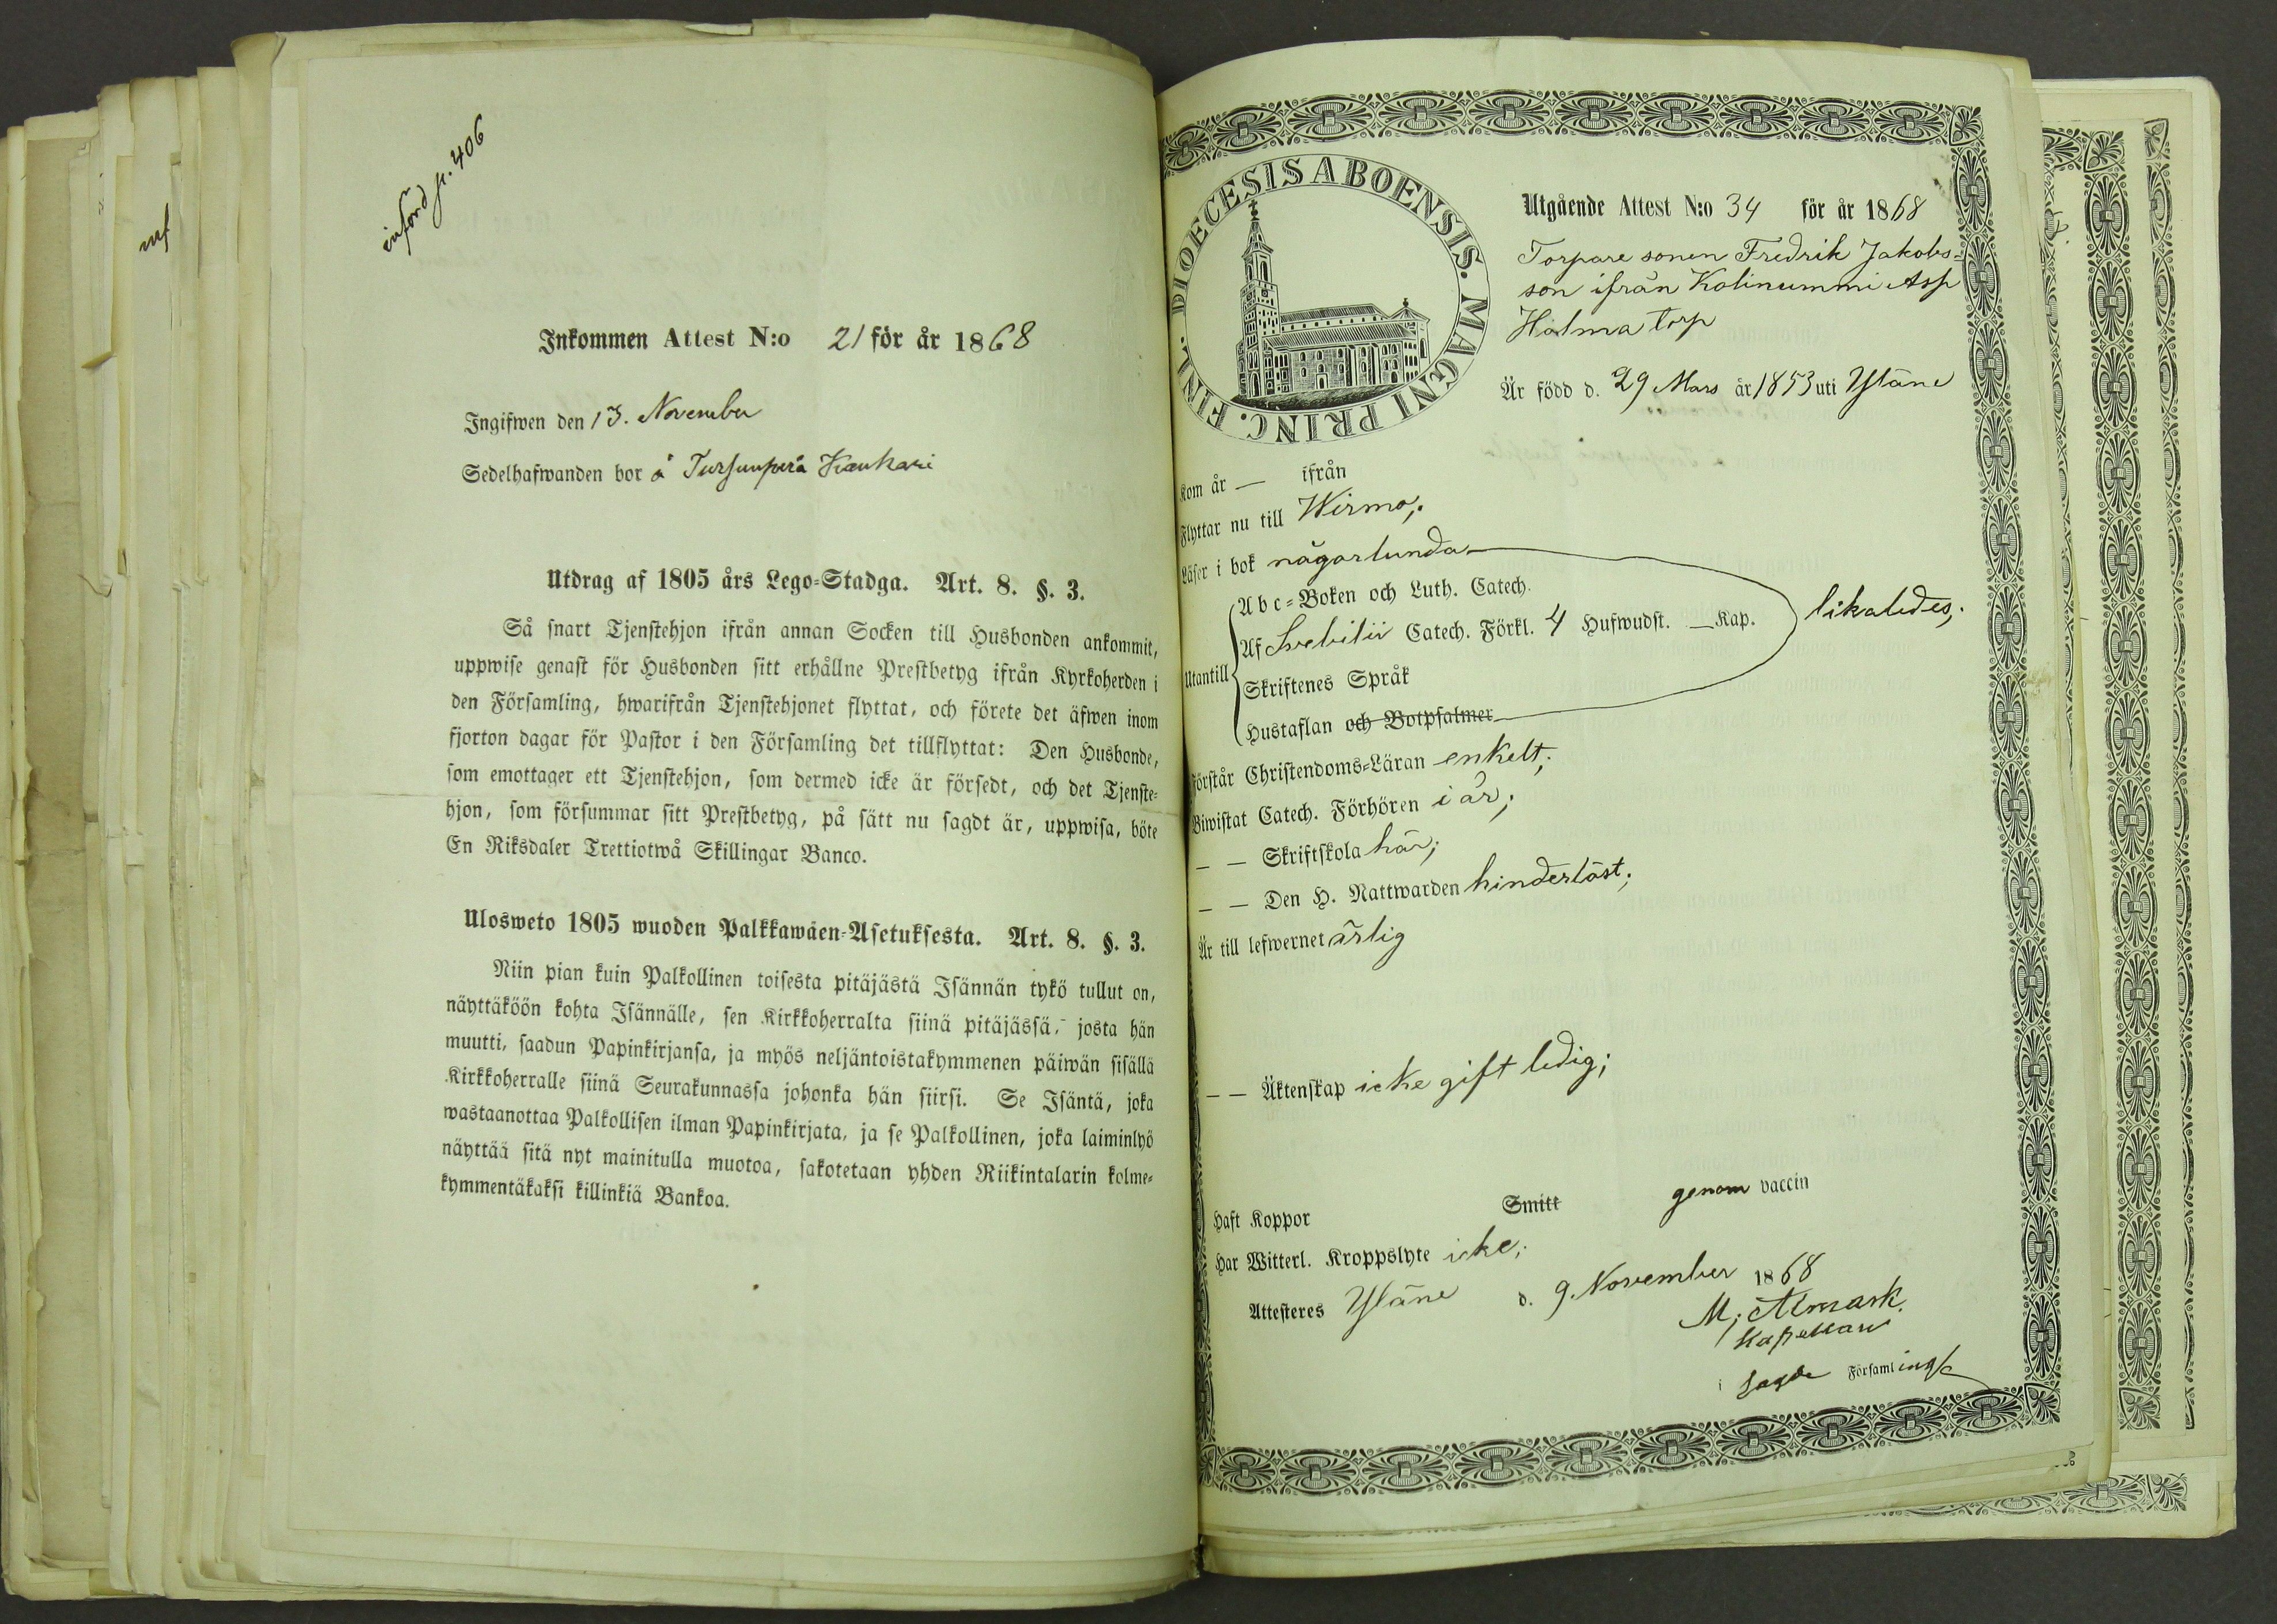 införd p. 406
mf
Inkommen Attest N:o 21 för år 1868
Ingifwen den 13. November
Sedelhafwanden bor å Tursunperä Kankare
Utdrag af 1805 års Lego=Stadga. Art. 8. §. 3.
Så snart Tjenstehjon ifrån annan Socken till Husbonden ankommit,
uppwise genast för Husbonden sitt erhållne Prestbetyg ifrån Kyrkoherden i
den Församling, hwarifrån Tjenstehjonet flyttat, och förete det äfwen inom
fjorton dagar för Pastor i den Församling det tillflyttat: Den Husbonde,
som emottager ett Tjenstehjon, som dermed icke är försedt, och det Tjenste=
hjon, som försummar sitt Prestbetyg, på sätt nu sagdt är, uppwisa, böte
En Riksdaler Trettiotwå Skillingar Banco.
Ulosweto 1805 wuoden Palkkawäen=Asetuksesta. Art. 8. §. 3.
Niin pian kuin Palkollinen toisesta pitäjästä Isännän tykö tullut on,
näyttäköön kohta Isännälle, sen Kirkkoherralta siinä pitäjässä, josta hän
muutti, saadun Papinkirjansa, ja myös neljäntoistakymmenen päiwän sisällä
Kirkkoherralle siinä Seurakunnassa johonka hän siirsi. Se Isäntä, joka
wastaanottaa Palkollisen ilman Papinkirjata, ja se Palkollinen, joka laiminlyö
näyttää sitä nyt mainitulla muotoa, sakotetaan yhden Riikintalarin kolme=
kymmentäkaksi killinkiä Bankoa.
DIOECESIS ABOENSIS. MAGNI PRINC. FINL.
Utgående Attest N:o 34 för år 1868
Torpare sonen Fredrik Jakobs=
son ifrån Kolinummi Asp
Holma torp
Är född d. 29 Mars år 1853 uti Yläne
Kom år — ifrån
Flyttar nu till Wirmo;
Läser i bok någorlunda
Abc=Boken och Luth. Catech.
Af Svebilii Catech. Förkl. 4 Hufwudst. — Kap. likaledes;
Utantill
Skriftenes Språk
Hustaflan och Botpsalmer
Förstår Christendoms=Läran enkelt;
Biwistat Catech. Förhören i år;
— — Skriftskola här;
— — Den H. Nattwarden hinderlöst;
Är till lefwernet ärlig
— — Äktenskap icke gift ledig;
Haft Koppor Smitt genom vaccin
Har Witterl. Kroppslyte icke;
Attesteres Yläne d. 9. November 1868
M; Almark.
Kapellan
i sagde Församling